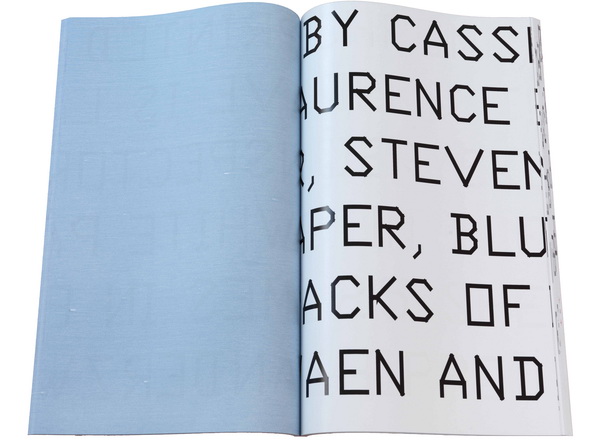 BY CASSI
AURENCE
R, STEVEN
APER, BLU
ACKS OF
AEN AND